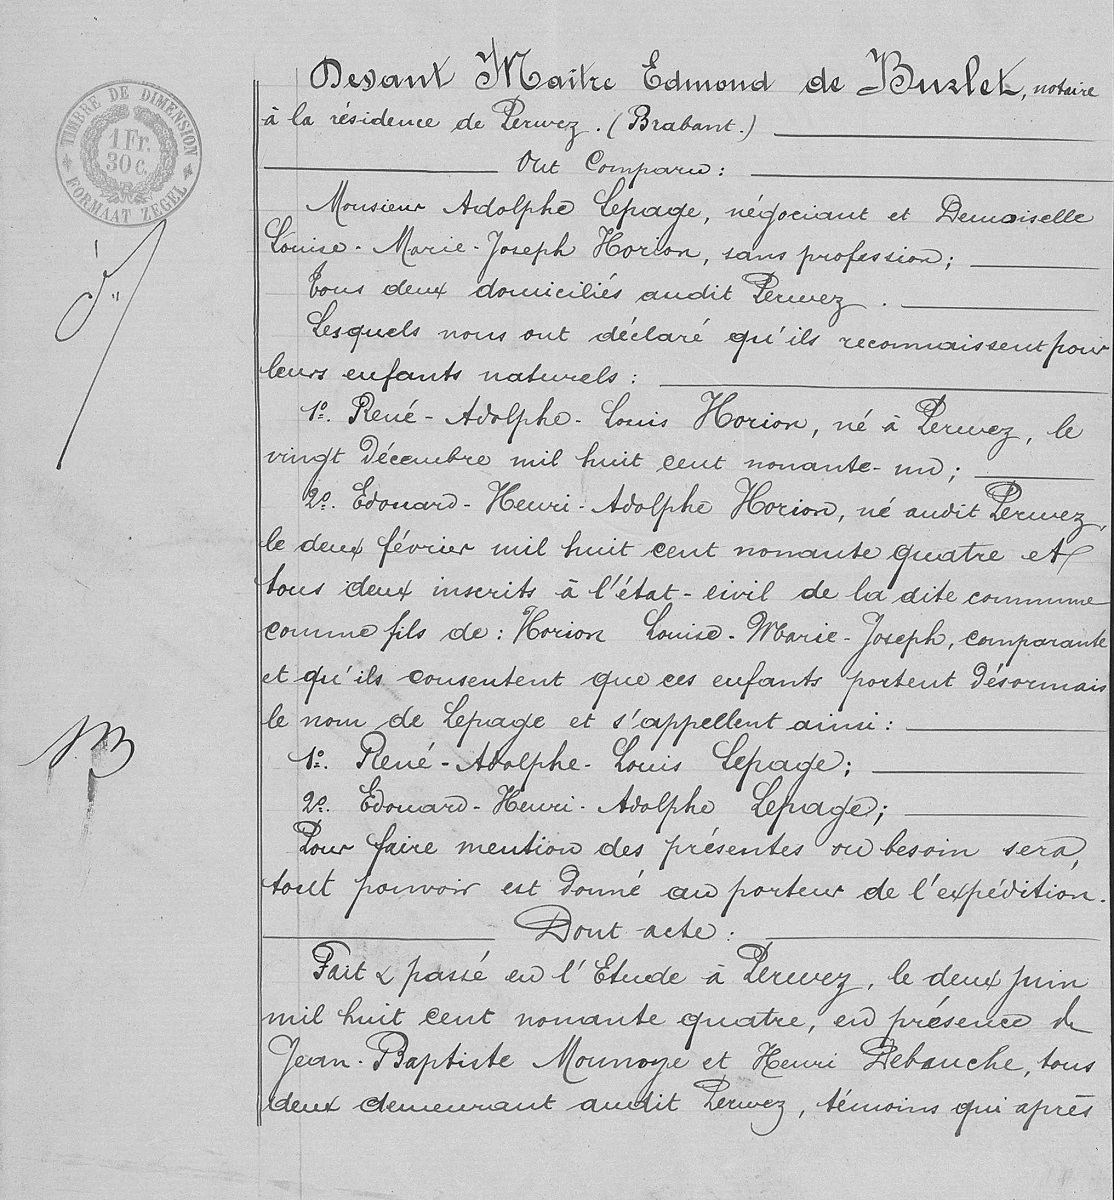 Devant Maître Edmond de Burlet, notaire
à la résidence de Perwez. (Brabant.)
Ont Comparu:
Monsieur Adolphe Lepage, négociant et Demoiselle
Louise-Marie-Joseph Horion, sans profession;
Tous deux domiciliés audit Perwez.
Lesquels nous ont déclaré qu'ils reconnaissent pour
leurs enfants naturels:
1º. René-Adolphe-Louis Horion, né à Perwez, le
vingt Décembre mil huit cent nonante-un;
2º. Edouard-Henri-Adolphe Horion, né audit Perwez,
le deux février mil huit cent nonante quatre et
tous deux inscrits à l'état-civil de la dite commune
comme fils de: Horion Louise-Marie-Joseph, comparante
et qu'ils consentent que ces enfants portent désormais
le nom de Lepage et s'appellent ainsi:
1º. René-Adolphe-Louis Lepage;
2º. Edouard-Henri-Adolphe Lepage;
Pour faire mention des présentes ou besoin sera,
tout pouvoir est donné au porteur de l'expédition.
Dont acte:
Fait & passé en l'Etude à Perwez, le deux juin
mil huit cent nonante quatre, en présence de
Jean-Baptiste Mounoye et Henri Debauche, tous
deux demeurant audit Perwez, témoins qui après
TIMBRE DE DIMENSION
1 Fr.
30 c.
FORMAAT ZEGEL